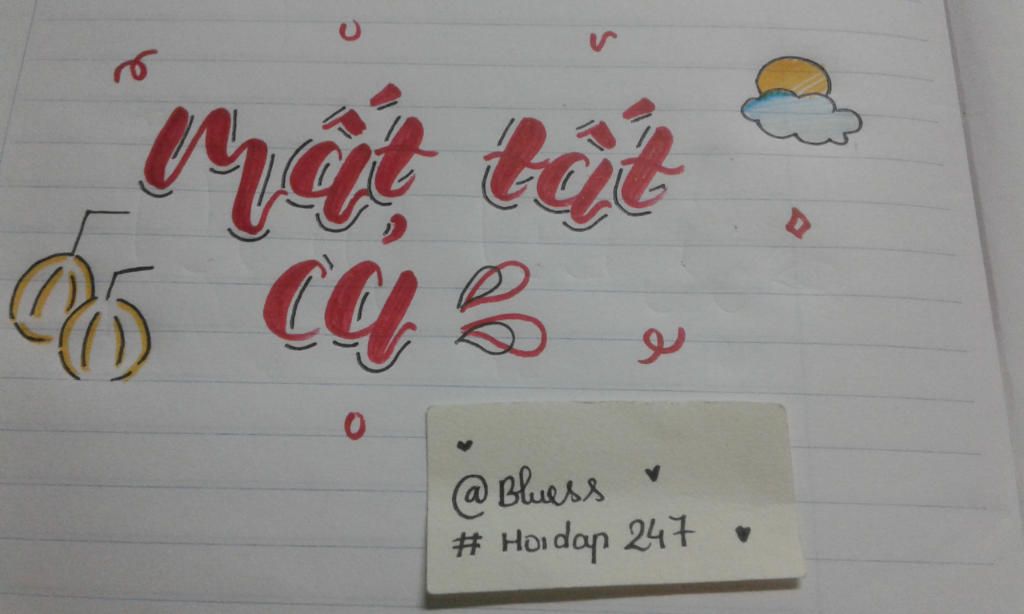 Mất tất
cả
@Bluess
# Hoidap 247